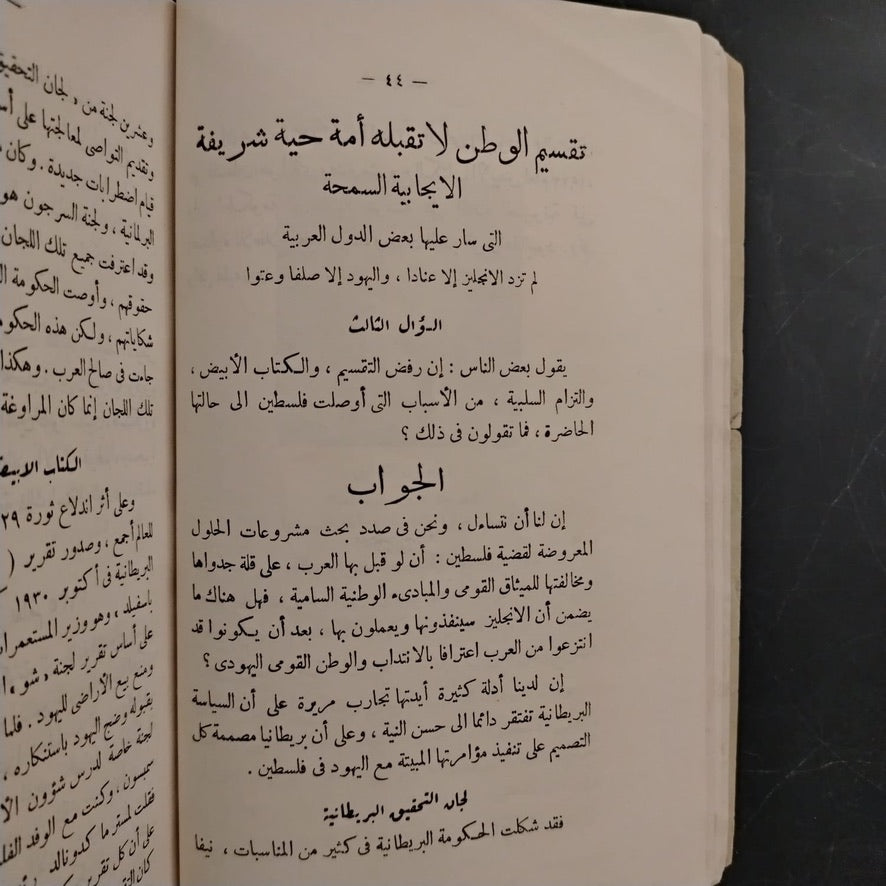 — ٤٤ —
تقسيم الوطن لا تقبله أمة حية شريفة
الايجابية السمحة
التى سار عليها بعض الدول العربية
لم تزد الانجليز إلا عنادا ، واليهود إلا صلفا وعتوا
السؤال الثالث
يقول بعض الناس : إن رفض التقسيم ، والكتاب الأبيض ،
والتزام السلبية ، من الأسباب التى أوصلت فلسطين الى حالتها
الحاضرة ، فما تقولون فى ذلك ؟
الجواب
إن لنا أن نتساءل ، ونحن فى صدد بحث مشروعات الحلول
المعروضة لقضية فلسطين : أن لو قبل بها العرب ، على قلة جدواها
ومخالفتها للميثاق القومى والمبادىء الوطنية السامية ، فهل هناك ما
يضمن أن الانجليز سينفذونها ويعملون بها ، بعد أن يكونوا قد
انتزعوا من العرب اعترافا بالانتداب والوطن القومى اليهودى ؟
إن لدينا أدلة كثيرة أيدتها تجارب مريرة على أن السياسة
البريطانية تفتقر دائما الى حسن النية ، وعلى أن بريطانيا مصممة كل
التصميم على تنفيذ مؤامرتها المبيتة مع اليهود فى فلسطين .
لجان التحقيق البريطانية
فقد شكلت الحكومة البريطانية فى كثير من المناسبات ، نيفا
وعشرين لجنة من « لجان التحقيق
وتقديم التواصى لمعالجتها على
قيام اضطرابات جديدة . وكان
البرلمانية ، ولجنة السر جون هو
وقد اعترفت جميع تلك اللجان
حقوقهم ، وأوصت الحكومة
شكاياتهم ، ولكن هذه الحكو
جاءت فى صالح العرب . وهكذا
تلك اللجان إنما كان المراوغة
الكتاب الابيض
وعلى أثر اندلاع ثورة ٢٩
للعالم أجمع ، وصدور تقرير (
البريطانية فى أكتوبر ١٩٣٠
باسفيلد ، وهو وزير المستعمرات
على أساس تقرير لجنة « شو »
ومنع بيع الأراضى لليهود . فلما
بقبوله وضج اليهود باستنكاره ،
لجنة خاصة لدرس شؤون
سمبسون ، وكنت مع الوفد
فقلت لمستر ماكدونالد
على أن كل تقرير